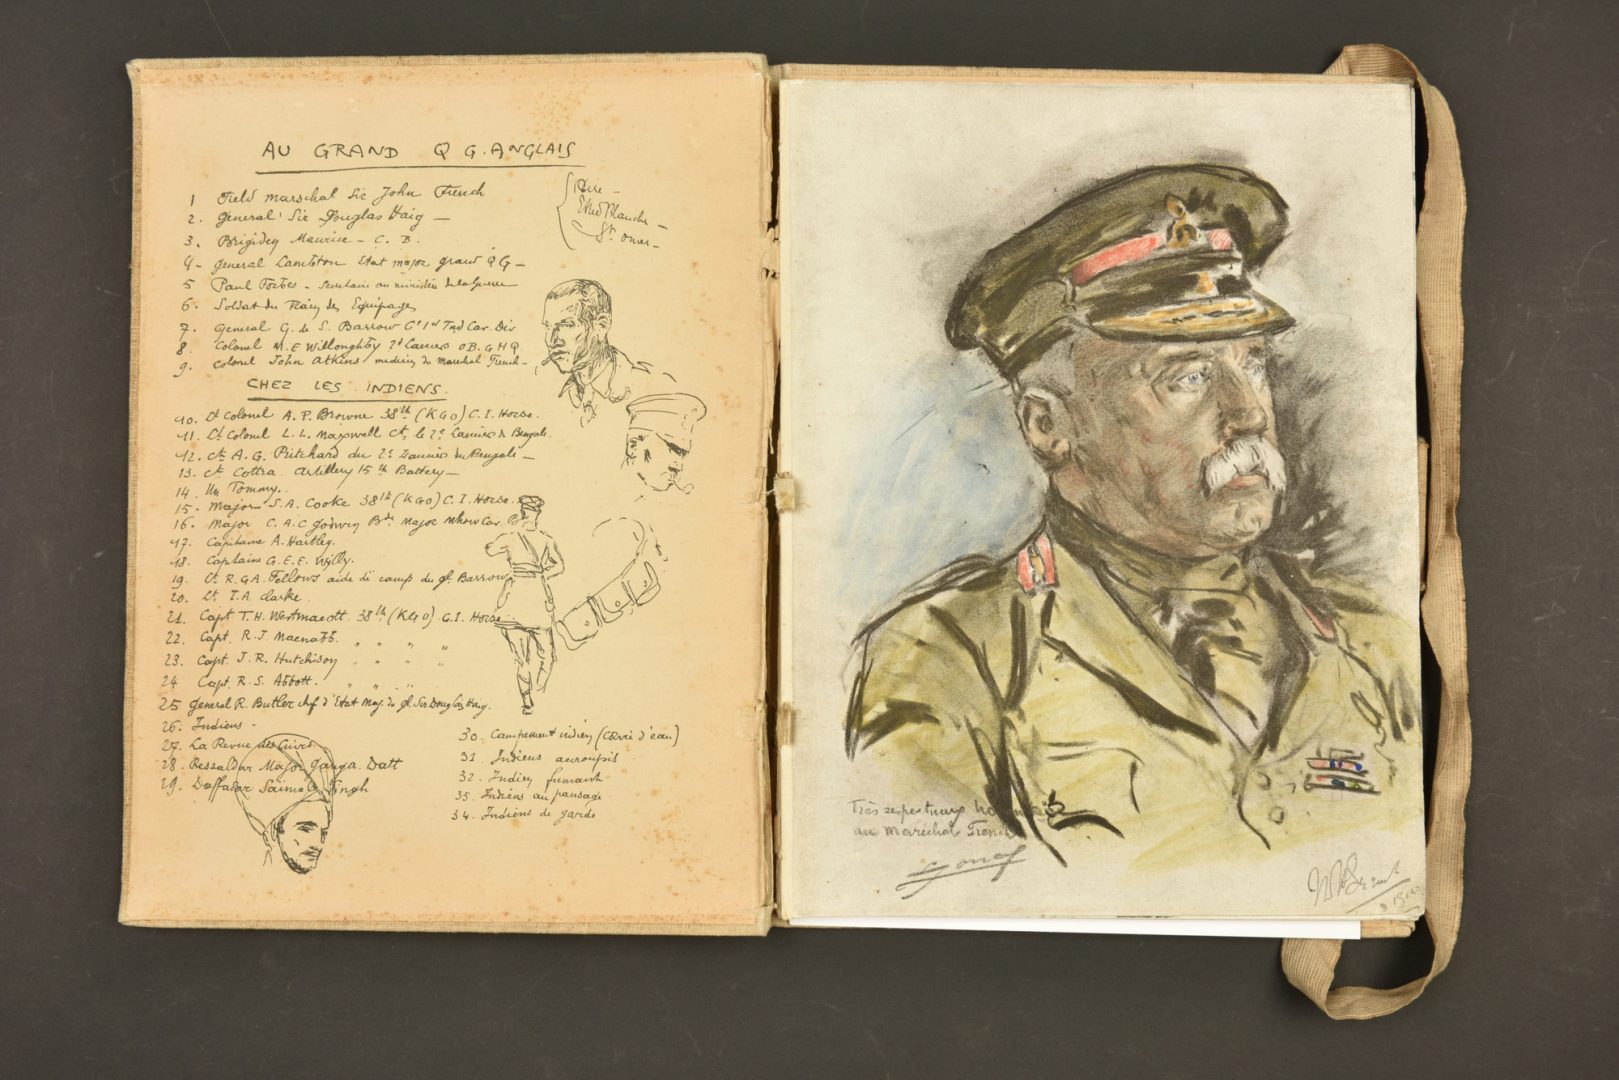 AU GRAND Q G. ANGLAIS
1 Field marschal Sir John French
2. General Sir Douglas Haig —
3. Brigidey Maurice - C. B.
4 - General Lambton Etat major grand Q G —
5 Paul Forbes - Secretaire au ministère de la Guerre
6. Soldat du Train des Equipages
7. General G. de S. Barrow Ct 1st Ind Cav. Div
8. Colonel M. E Willoughby 2d Lancers O B. G H Q
9. Colonel John Atkins medecin du Marechal French -
Aire -
St Omer -
CHEZ LES INDIENS.
10. Lt Colonel A. P. Browne 38th (KGO) C. I. Horse.
11. Lt Colonel L. L. Maxwell Ct le 2e Lanciers du Bengale.
12. Ct A. G. Pritchard du 2e Lanciers du Bengale —
13. Ct Cottra Artillery 15th Battery —
14. Un Tommy.
15. Major S. A. Cooke 38th (KGO) C. I. Horse.
16. Major C. A. C Godwin Bde Major Mhow Cav. B
17. Capitaine A. Hartley.
18. Capitaine G. E. E. Wylly.
19. Lt R. G. A. Fellows aide de camp du gl. Barrow
20. Lt I. A. Clarke
21. Capt T. H. Westmacott 38th (KGO) C. I. Horse
22. Capt. R. J. Macnabb. " " " "
23. Capt. J. R. Hutchison " " " "
24 Capt. R. S. Abbott. " " " "
25 General R. Butler chef d'Etat Maj. du gl Sir Douglas Haig.
26. Indiens -
27. La Revue des Cuirs
28. Ressaldar Major Ganga. Datt
29. Daffadar Singh
30. Campement indien (Corvée d'eau)
31. Indiens accroupis
32. Indien fumant
33. Indiens au pansage
34. Indiens de garde
Très respectueux hommage
au Maréchal French